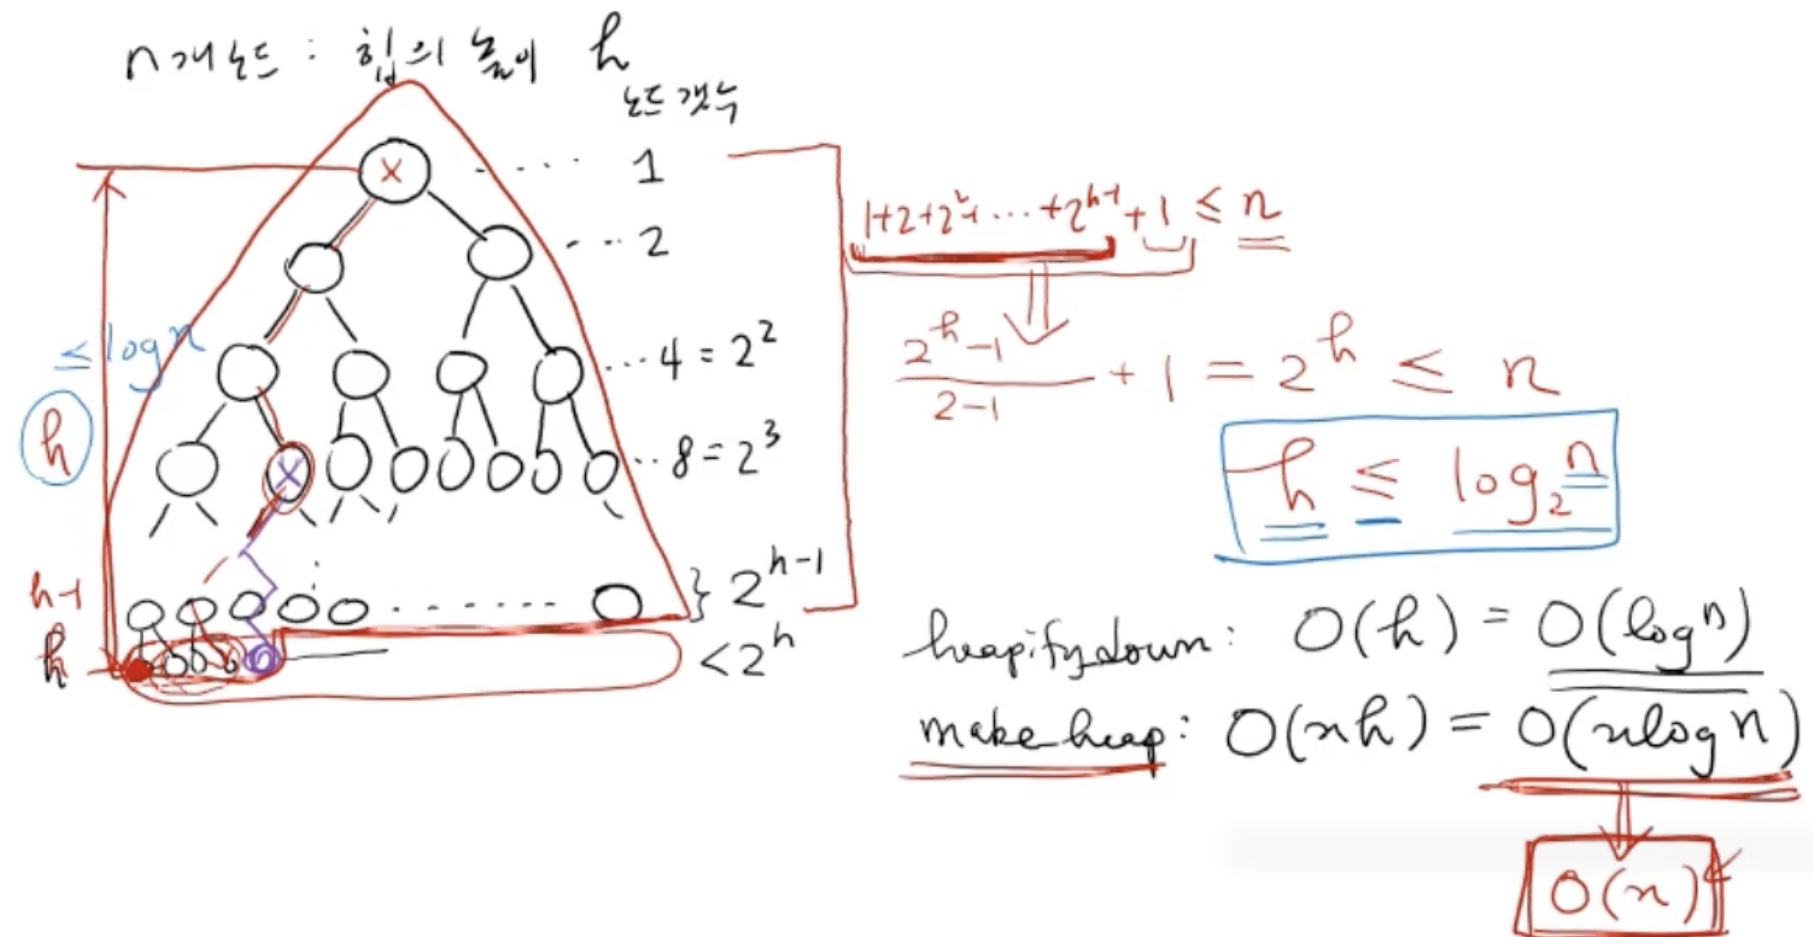 n개 노드 : 힙의 높이 h
노드 갯수
x
1
2
4 = 2²
8 = 2³
x
≤ log n
h
h-1
h
} 2^{h-1}
< 2^h
1+2+2²+ ... +2^{h-1} + 1 ≤ n
\frac{2^h-1}{2-1} + 1 = 2^h ≤ n
h ≤ log₂n
heapify_down : O(h) = O(log n)
make_heap : O(nh) = O(n log n)
O(n)